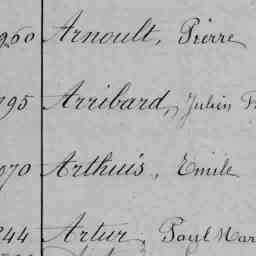 960 Arnoult, Pierre
795 Arribard, Julien
070 Arthuis, Emile
244 Artur, Paul Mar